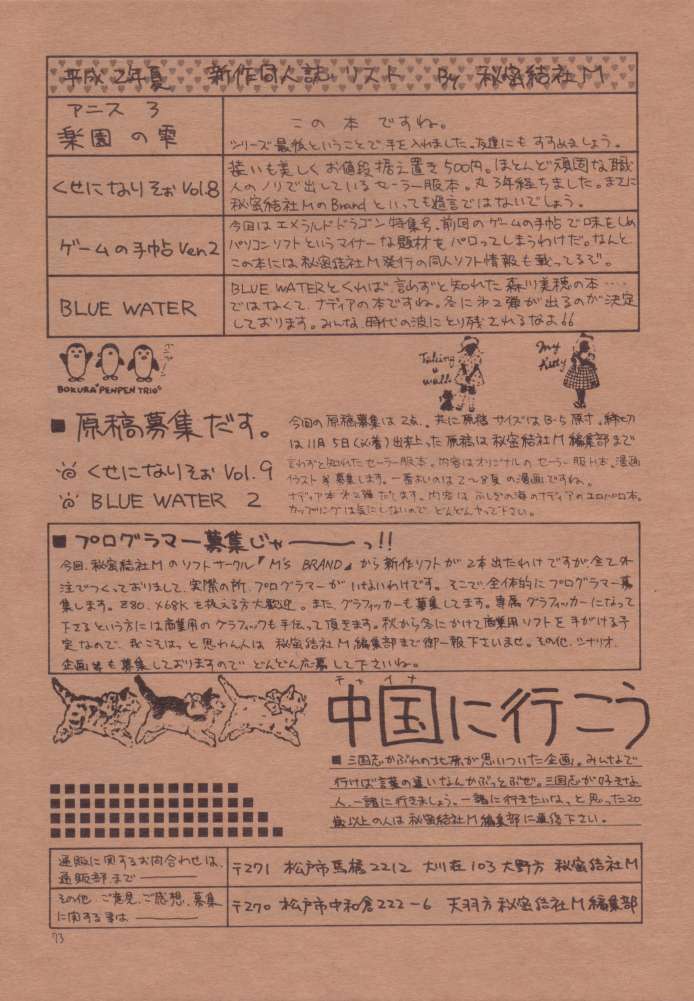 平成2年夏 新作同人誌リスト By 秘密結社M
アニス 3
楽園の雫
この本ですね。
シリーズ最後ということで手を入れました。友達にもすすめましょう。
くせになりそぉ Vol.8
装いも美しくお値段据え置き500円。ほとんど頑固な職
人のノリで出しているセーラー服本。丸3年経ちました。まさに
秘密結社MのBrandといっても過言ではないでしょう。
ゲームの手帖 Ver.2
今回はエメラルドドラゴン特集号。前回のゲームの手帖で味をしめ
パソコンソフトというマイナーな題材をパロってしまうわけだ。なんと
この本には秘密結社M発行の同人ソフト情報も載ってるぞ。
BLUE WATER
BLUE WATERとくれば、言わずと知れた森川美穂の本‥‥
ではなくて、ナディアの本ですね。冬にネ2弾が出るのが決定
しております。みんな時代の波にとり残されるなよ66
BOKURA "PENPEN TRIO"
Taking a walk
My Kitty
■ 原稿募集だす。
くせになりそぉ Vol.9
BLUE WATER 2
今回の原稿募集は2点。共に原稿サイズはB-5原寸。締切
は11月5日(必着)出来上った原稿は秘密結社M編集部まで
言わずと知れたセーラー服本。内容はオリジナルのセーラー服H本。漫画
イラスト等募集します。一番おいしいのは2〜8頁の漫画ですね。
ナディア本ネ2弾だします。内容はふしぎの海のナディアのエロパロ本。
カップリングは気にしないので、どんどんやって下さい。
■ プログラマー募集じゃ――っ!!
今回、秘密結社Mのソフトサークル『M's BRAND』から新作ソフトが2本出たわけですが、全て外
注でつくっておりまして、実際の所、プログラマーがいないわけです。そこで、全体的にプログラマー募
集します。Z80、X68Kを扱える方大歓迎。また、グラフィッカーも募集してます。専属グラフィッカーになって
下さるという方には商業用のグラフィックも手伝って頂きます。秋から冬にかけて商業用ソフトを手がける予
定なので、我こそはっと思わん人は 秘密結社M編集部まで御一報下さいませ。その他、シナリオ、
企画等も募集しておりますので どんどん応募して下さいね。
チャイナ
中国に行こう
■ 三国志かぶれの北原が思いついた企画。みんなで
行けば言葉の違いなんかぶっとぶぜ。三国志が好きな
人、一諸に行きましょう。一諸に行きたいなっと思った20
歳以上の人は秘密結社M編集部に連絡下さい。
通販に関するお問合わせは、
通販部まで――
〒271 松戸市馬橋2212 大川荘103 大野方 秘密結社M
その他、ご意見、ご感想、募集
に関する事は――
〒270 松戸市中和倉222-6 天羽方 秘密結社M編集部
73